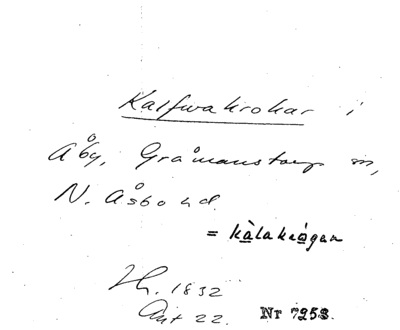 Kalfwakrokar i
Åby, Gråmanstorps sn,
N. Åsbo hd.
= kàlakrågen
Lh. 1832
Akt 22. Nr 7253